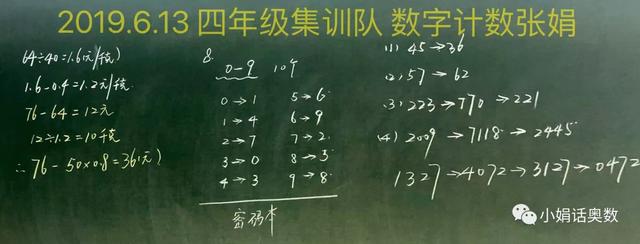 2019.6.13 四年级集训队 数字计数张娟
64÷40=1.6(元/千克)
1.6-0.4=1.2元/千克
76-64=12元
12÷1.2=10千克
∴76-50×0.8=36(元)
8. 0-9 10个
0→1 5→6
1→4 6→9
2→7 7→2
3→0 8→5
4→3 9→8
密码本
(1) 45→36
(2) 57→62
(3) 223→770→221
(4) 2009→7118→2445
1327→4072→3127→0472
小娟话奥数